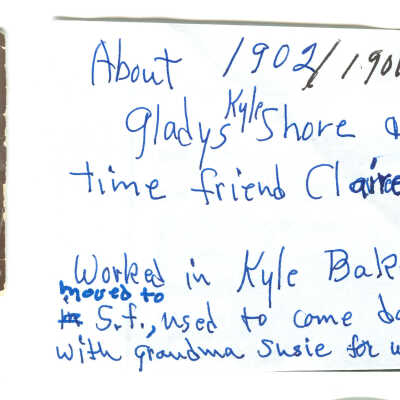 About 1902/190
Gladys Kyle Shore a
time friend Claire
Worked in Kyle Bak
moved to
S.f., used to come
with grandma Susie for w